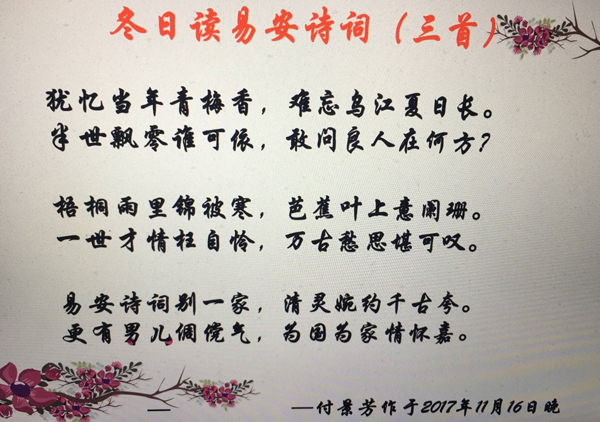 冬日读易安诗词（三首）
犹忆当年青梅香，难忘乌江夏日长。
半世飘零谁可依，敢问良人在何方？
梧桐雨里锦被寒，芭蕉叶上意阑珊。
一世才情枉自怜，万古愁思堪可叹。
易安诗词别一家，清灵婉约千古夸。
更有男儿倜傥气，为国为家情怀嘉。
— —付景芳作于2017年11月16日晚